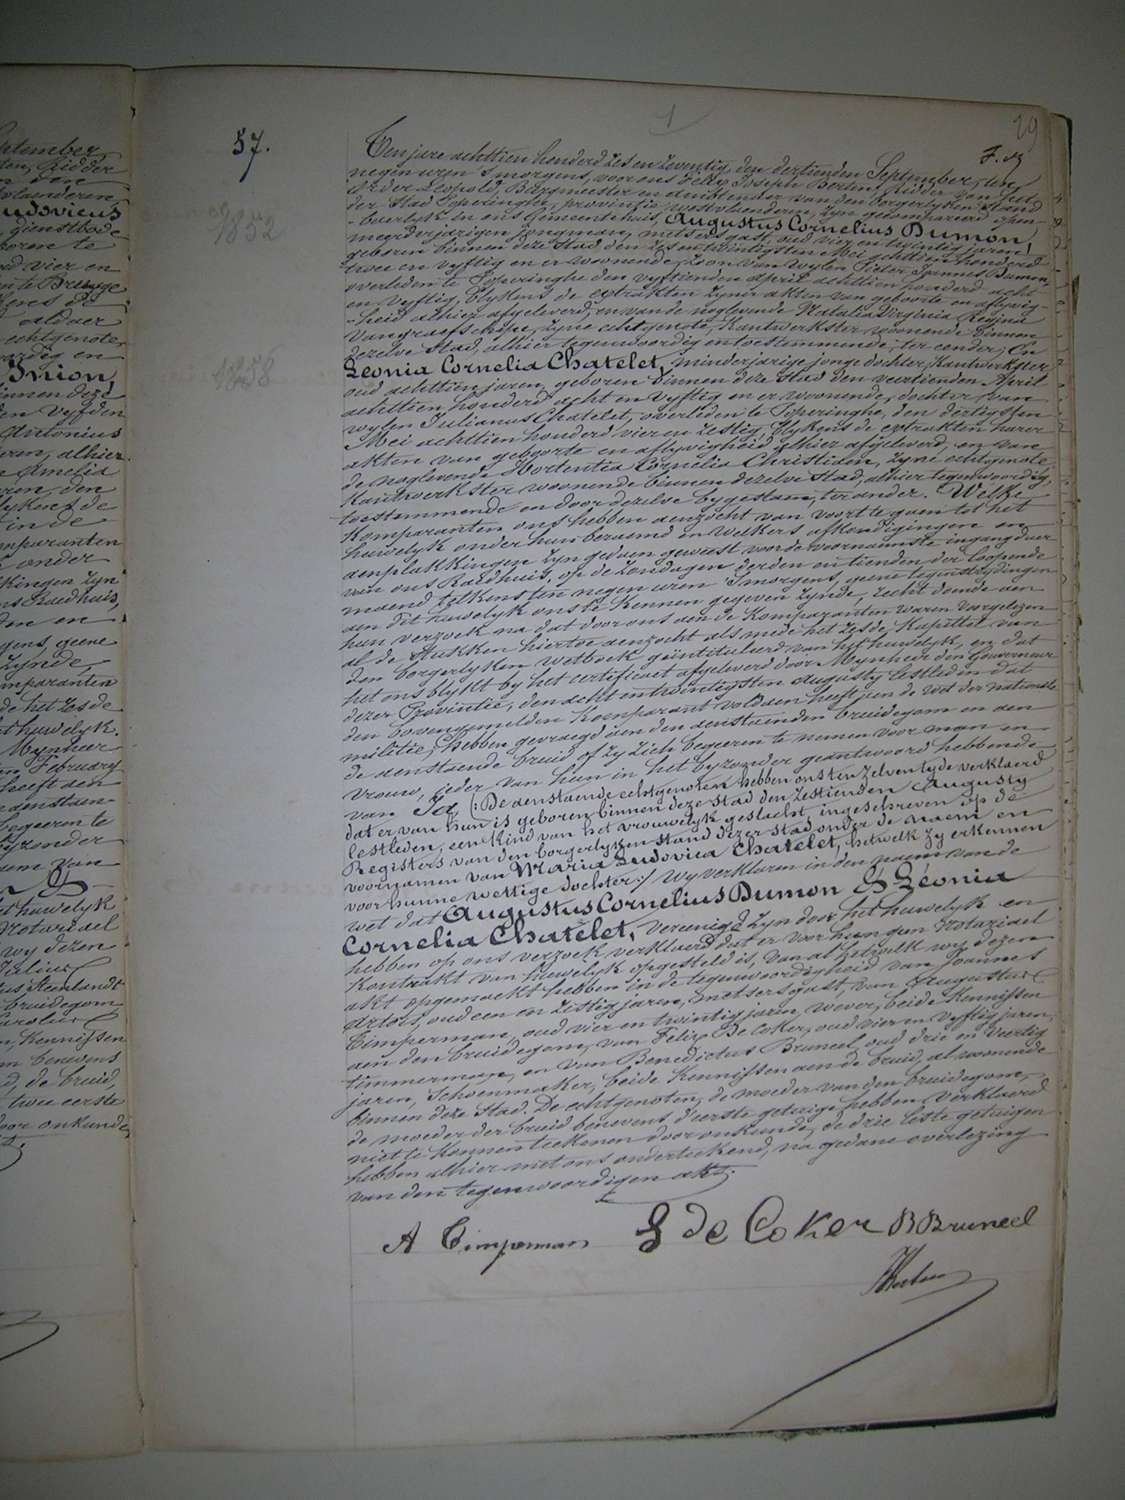 57.
1
29
Ten jare achttien honderd zes en zeventig den dertienden September, ten
negen uren 's morgens, voor ons Felix Joseph Berten Ridder van het
Order Leopold, Burgmeester en ambtenaer van den borgerlyken stand
der Stad Poperinghe, provintie Westvlaenderen, zyn gekompareerd open-
-baerlyk in ons Gemeentehuis, Augustus Cornelius Dumon,
meerderjarigen jongman, metsersgast, oud vier en twintig jaren
geboren binnen deze Stad den zes en twintigsten Mei achttien honderd
twee en vyftig en er woonende, zoon van wylen Pieter Joannes Dumon,
overleden te Poperinghe den vyftienden April achttien honderd acht
en vyftig, blykens de extrakten zynir akten van geboorte en aflyvig-
-heid alhier afgeleverd, en van de nagleevende Natalia Virginia Regina
Vangraefschepe, zyne echtgenote, Kantwerkster woonende binnen
dezelve Stad, alhier tegenwoordig en toestemmende, ter eender; En
Leonia Cornelia Chatelet, minderjarige jonge dochter, Kantwerkster
oud achttien jaren, geboren binnen deze Stad den veertienden April
achttien honderd acht en vyftig en er woonende, dochter van
wylen Julianus Chatelet, overleden te Poperinghe, den dertigsten
Mei achttien honderd vier en zestig, blykens de extrakten harer
akten van geboorte en aflyvigheid alhier afgeleverd, en van
de naglevende Hortentia Cornelia Christiaen, zyne echtgenote,
Kantwerkster woonende binnen dezelve Stad, alhier tegenwoordig,
toestemmende en door dezelve bygestaen, ter ander. Welke
Komparanten ons hebben aenzocht van voort te gaen tot het
huwelyk onder hun beraemd en welkers afkondigingen en
aenplakkingen zyn gedaen geweest voor de voornaemste ingangdeur
van ons Raedhuis, op de zondagen derden en tienden der loopende
maend telkens ten negen uren 's morgens, geene tegenstrydingen
aen dit huwelyk ons te kennen gegeven zynde, recht doende aen
hun verzoek na dat door ons aen de Komparanten waren voorgelezen
al de stukken hiertoe aenzocht als mede het zesde Kapittel van
den borgerlyken wetboek geïntituleerd van het huwelyk, en dat
het ons blykt by het certificaet afgeleverd door Mynheer den Gouverneur
dezer Provintie, den acht en twintigsten Augusty lestleden dat
den bovengemelden Komparant voldaen heeft aen de wet der nationale
militie, hebben gevraegd aen den aenstaenden bruidegom en aen
de aenstaende bruid of zy zich begeeren te nemen voor man en
vrouw, ieder van hun in het byzonder geantwoord hebbende
van Ja, (: De aenstaende echtgenoten hebben ons ten zelven tyde verklaerd
dat er van hun is geboren binnen deze stad den zestienden Augusty
lestleden, een kind van het vrouwelyk geslacht, ingeschreven op de
Registers van den borgerlyken Stand dezer stad onder de naem en
voornamen van Maria Ludovica Chatelet, hetwelk zy erkennen
voor hunne wettige dochter :) wy verklaren in den naem van de
wet dat Augustus Cornelius Dumon & Léonia
Cornelia Chatelet, vereenigd zyn door het huwelyk en
hebben op ons verzoek verklaerd dat er voor hun geen notarieel
Kontrakt van huwelyk opgesteld is, van al hetwelk wy dezen
akt opgemaekt hebben in de tegenwoordigheid van Joannes
Artois, oud een en zestig jaren, metsersgast, van Augustus
Timperman, oud vier en twintig jaren, wever, beide Kennissen
aen den bruidegom, van Felix De Coker, oud vier en vyftig jaren,
timmerman, en van Benedictus Bruneel oud drie en veertig
jaren, Schoenmaker, beide Kennissen aen de bruid, al woonende
binnen deze Stad. De echtgenoten, de moeder van den bruidegom,
de moeder der bruid benevens d'eerste getuige hebben verklaerd
niet te konnen teekenen door onkunde, de drie leste getuigen
hebben alhier met ons onderteekend, na gedane overlezing
van den tegenwoordigen akt.
A Timperman
De Coker
B Bruneel
Berten
1852
1858